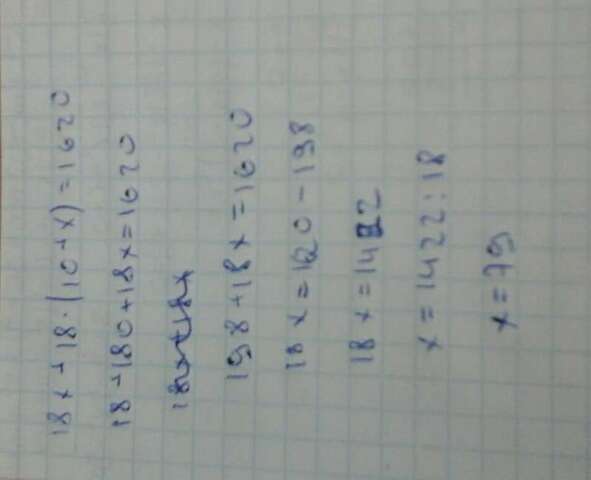 18x+18·(10+x)=1620
18+180+18x=1620
198+18x=1620
18x=1620-198
18x=1422
x=1422:18
x=79